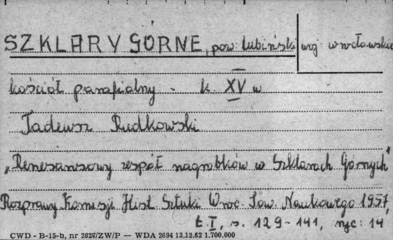 SZKLARY GÓRNE, pow. lubiński woj. wrocławskie
kościół parafialny - k. XV w
Tadeusz Rudkowski
"Renesansowy zespół nagrobków w Szklarach Górnych"
Rozprawy Komisji Hist. Sztuki Wroc. Tow. Naukowego 1957,
t. I, s. 129-141, ryc. 14
CWD - B-15-b, nr 2827/ZW/P — WDA 2694 13.12.62 1.700.000